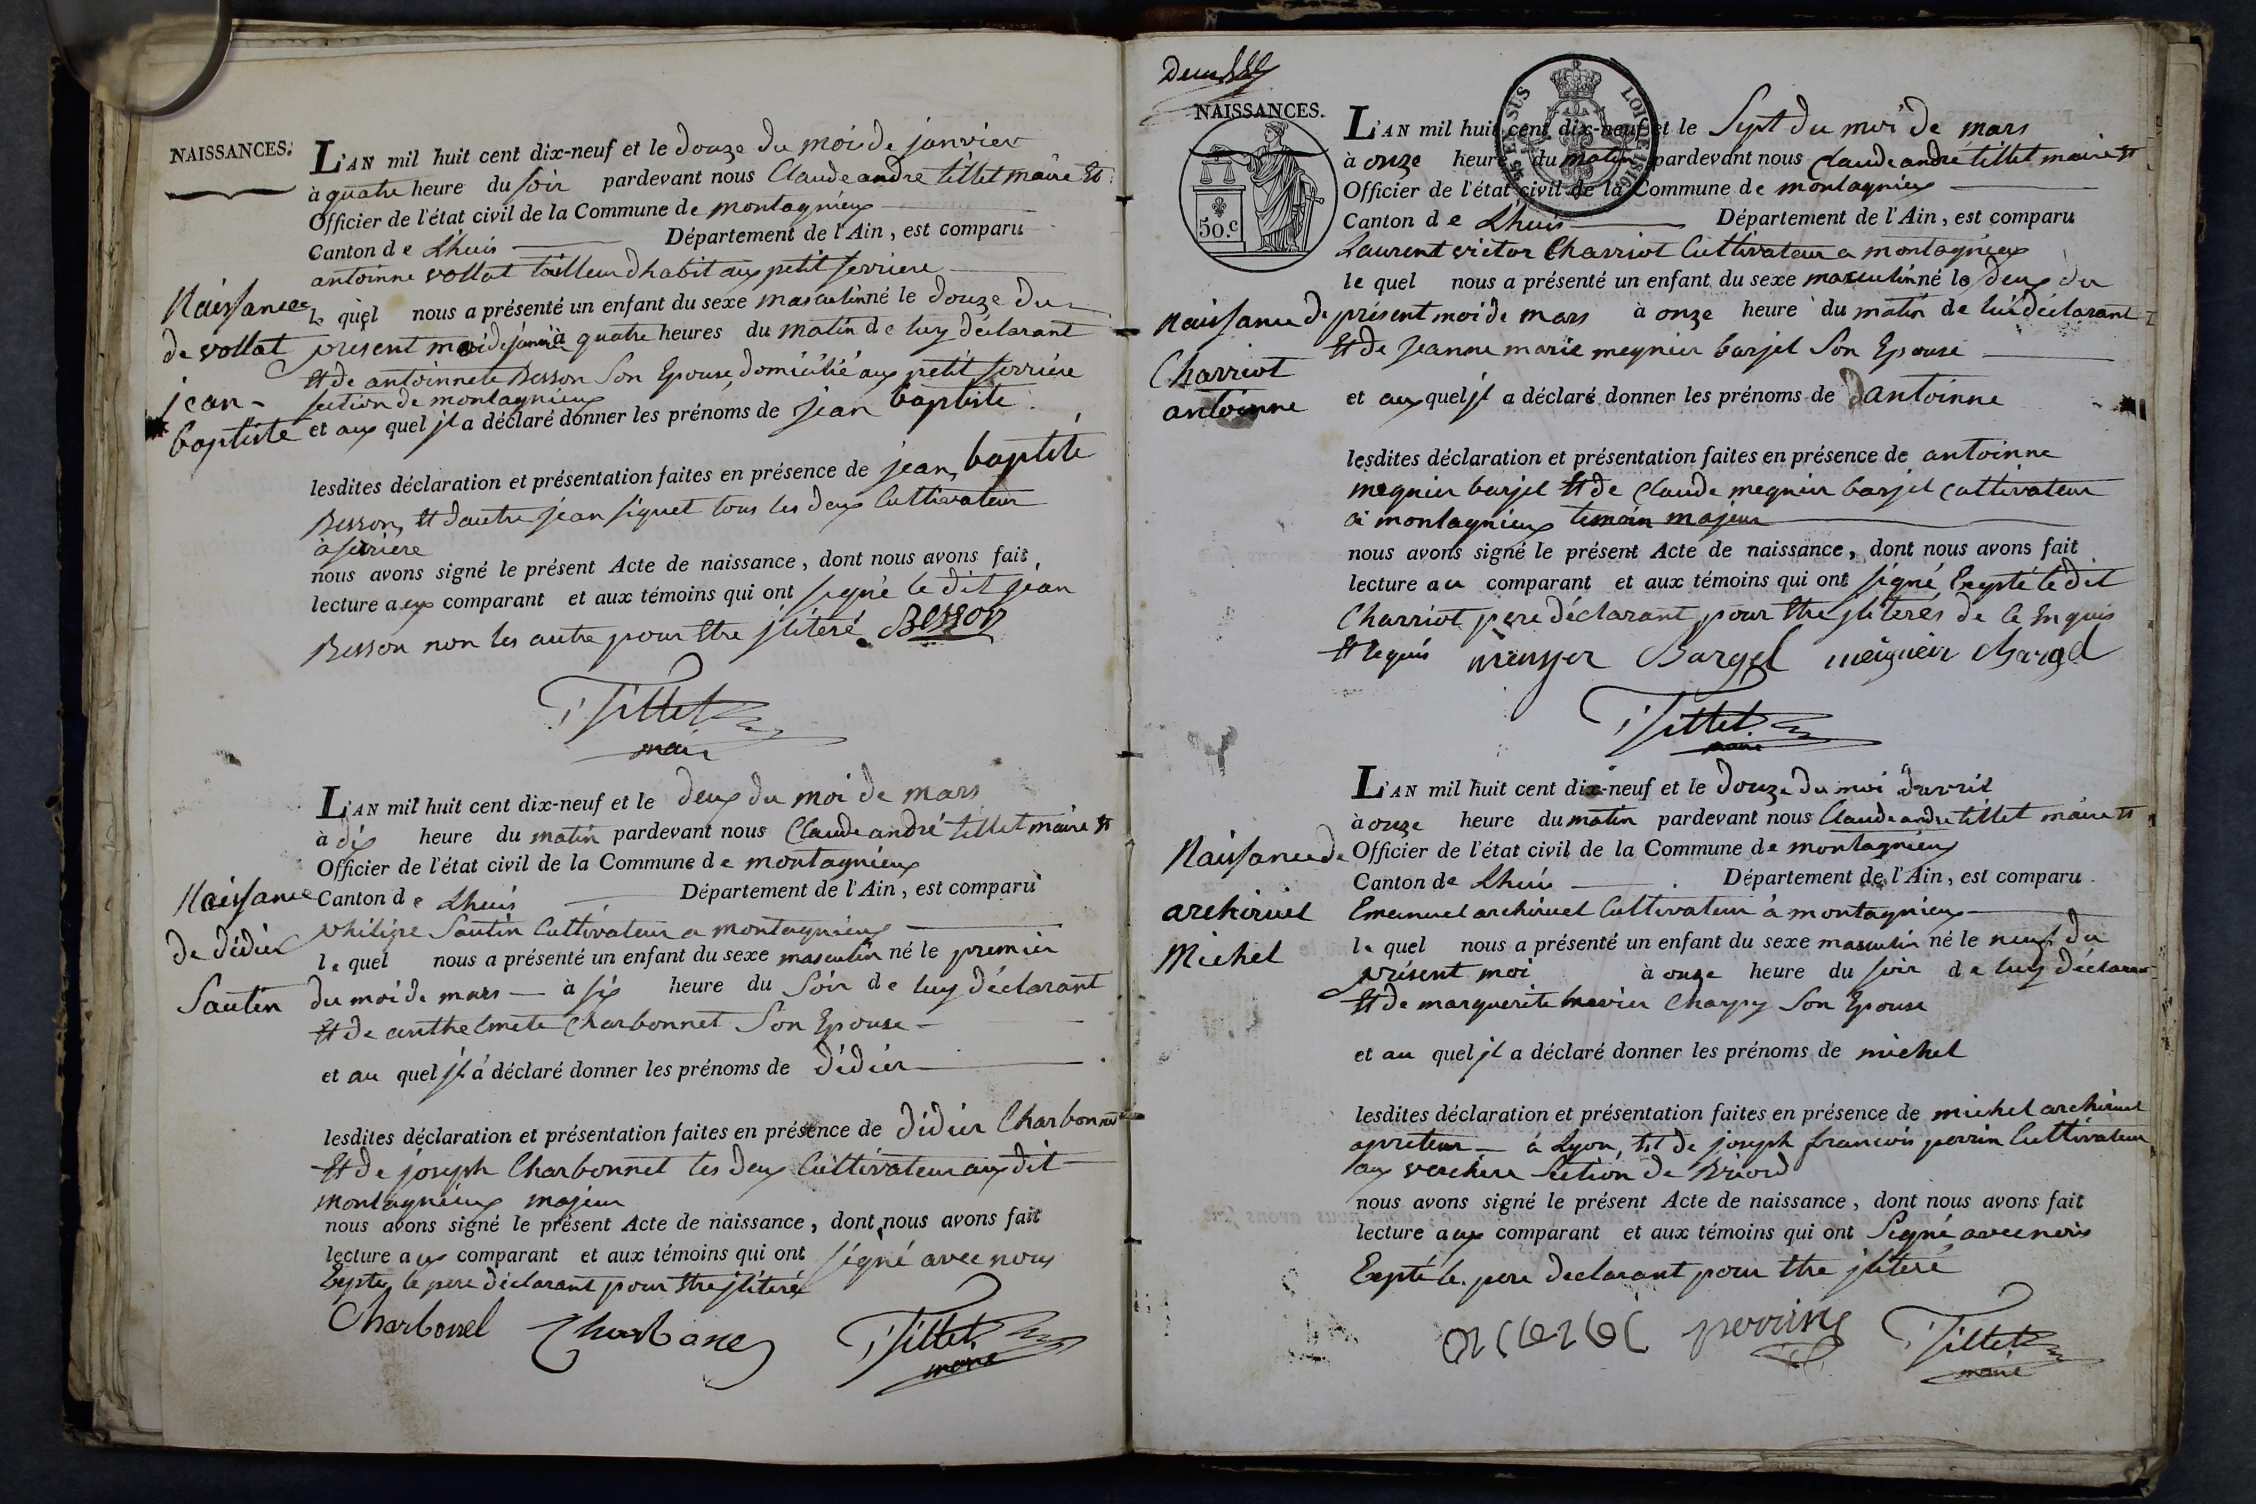 NAISSANCES.
L'AN mil huit cent dix-neuf et le douze du mois de janvier
à quatre heure du soir pardevant nous Claude andré tillet maire Et
Officier de l'état civil de la Commune de montagnieux
Canton de Lhuis Département de l'Ain, est comparu
antoinne vollat tailleur dhabit aux petit serriere
le quel nous a présenté un enfant du sexe masculin né le douze du
present moi de janvier à quatre heures du matin de luy déclarant
Et de antoinnete Besson Son Epouse, domicilié aux petit serriére
section de montagnieux
et aux quel jl a déclaré donner les prénoms de jean baptiste
lesdites déclaration et présentation faites en présence de jean baptiste
Besson, Et dautre jean siquet tous les deux Cultivateur
à seriére
nous avons signé le présent Acte de naissance, dont nous avons fait
lecture aux comparant et aux témoins qui ont signé le dit jean
Besson non les autre pour Etre jlitéré Besson
Tillet
maire
Naissance
de vollat
jean-
baptiste
L'AN mil huit cent dix-neuf et le deux du moi de mars
à dix heure du matin pardevant nous Claude andré tillet maire Et
Officier de l'état civil de la Commune de montagnieux
Canton de Lhuis Département de l'Ain, est comparu
philipe Sautin Cultivateur a montagnieux
le quel nous a présenté un enfant du sexe masculin né le premier
du moi de mars à six heure du Soir de luy déclarant
Et de anthelmete Charbonnet Son Epouse
et au quel jl a déclaré donner les prénoms de didier
lesdites déclaration et présentation faites en présence de didier Charbonnet
Et de joseph Charbonnet les deux Cultivateur aux dit
montagnieux majeur
nous avons signé le présent Acte de naissance, dont nous avons fait
lecture aux comparant et aux témoins qui ont signé avec nous
Exepté le pere déclarant pour Etre jlitéré
Charbonnel Charbone Tillet
maire
Naissance
de didier
Sautin
NAISSANCES.
50.c
SIS EN SUS LOI DE 1816
L'AN mil huit cent dix-neuf et le Sept du moi de mars
à onze heure du matin pardevant nous Claude andré tillet maire Et
Officier de l'état civil de la Commune de montagnieux
Canton de Lhuis Département de l'Ain, est comparu
Laurent victor Charriot Cultivateur a montagnieux
le quel nous a présenté un enfant du sexe masculin né le deux du
présent moi de mars à onze heure du matin de lui déclarant
Et de jeanne marie meynier barjel Son Epouse
et aux quel jl a déclaré donner les prénoms de dantoinne
lesdites déclaration et présentation faites en présence de antoinne
megnier barjel Et de Claude megnier barjel cultivateur
à montagnieux temoin majeur
nous avons signé le présent Acte de naissance, dont nous avons fait
lecture au comparant et aux témoins qui ont signé Exepté le dit
Charriot pere déclarant pour Etre jliterés de ce Enquis
Et requis Bargel meignier Bargel
Tillet
maire
Naissance de
Charriot
antoinne
L'AN mil huit cent dix-neuf et le douze du moi davril
à onze heure du matin pardevant nous Claude andre tillet maire Et
Officier de l'état civil de la Commune de montagnieux
Canton de Lhuis Département de l'Ain, est comparu
Emanuel archiruel Cultivateur à montagnieux
le quel nous a présenté un enfant du sexe masculin né le neuf du
présent moi à onze heure du soir de luy déclarant
Et de marguerite Charpy Son Epouse
et au quel jl a déclaré donner les prénoms de michel
lesdites déclaration et présentation faites en présence de michel archiruel
apreteur à Lyon, Et de joseph francois perrin Cultivateur
aux verchere Section de Briord
nous avons signé le présent Acte de naissance, dont nous avons fait
lecture aux comparant et aux témoins qui ont Signé avec nous
Exepté le pere declarant pour Etre jliteré
perrin Tillet
maire
Naissance de
archiruel
Michel